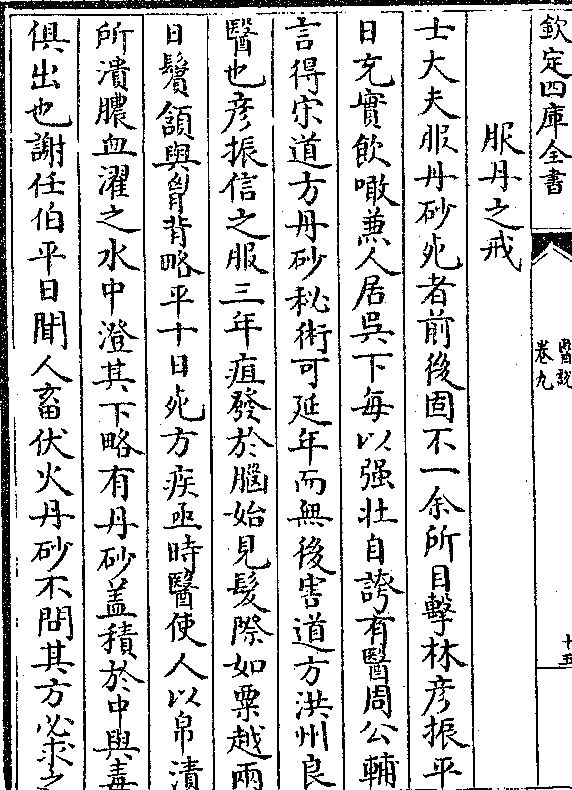 欽定四庫全書
醫說
卷九
十五
服丹之戒
士大夫服丹砂死者前後固不一余所目擊林彥振平
日充實飲噉兼人居吳下每以强壯自誇有醫周公輔
言得宋道方丹砂秘術可延年而無後害道方洪州良
醫也彥振信之服三年疽發於腦始見髮際如粟越兩
日鬚頷與胷背略平十日死方疾亟時醫使人以帛漬
所潰膿血濯之水中澄其下略有丹砂盖積於中與毒
俱出也謝任伯平日聞人畜伏火丹砂不問其方必求之